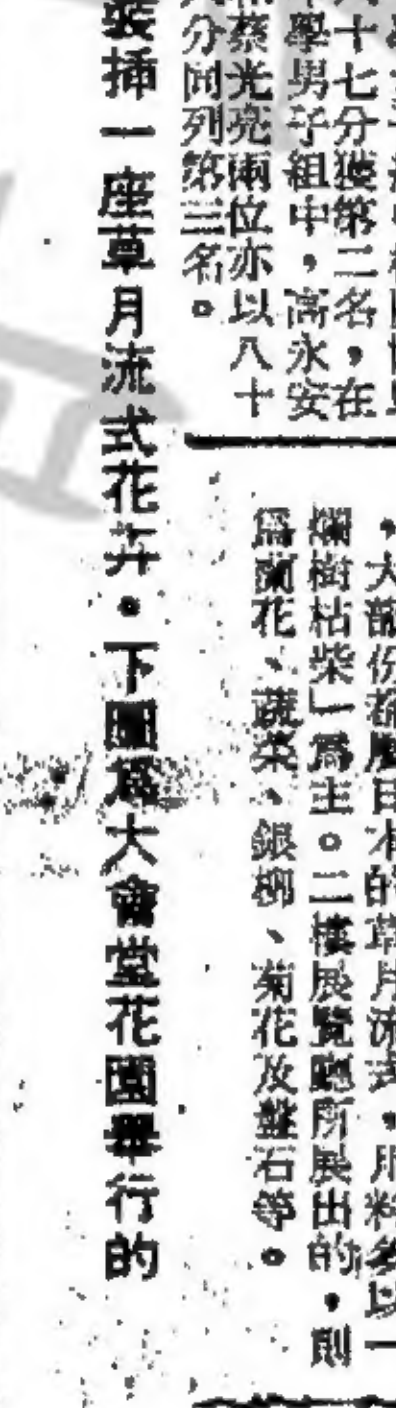 十七分獲第二名，在
學男子組中，高永安
蔡光亮兩位亦以八十
分同列第三名。
，大部份都屬日本的草月流式，用料多以「
爛樹枯柴」為主。二樓展覽廳所展出的，則
為蘭花、蔬菜、銀柳、菊花及盤石等。
裝插一座草月流式花卉。下圖為大會堂花園舉行的